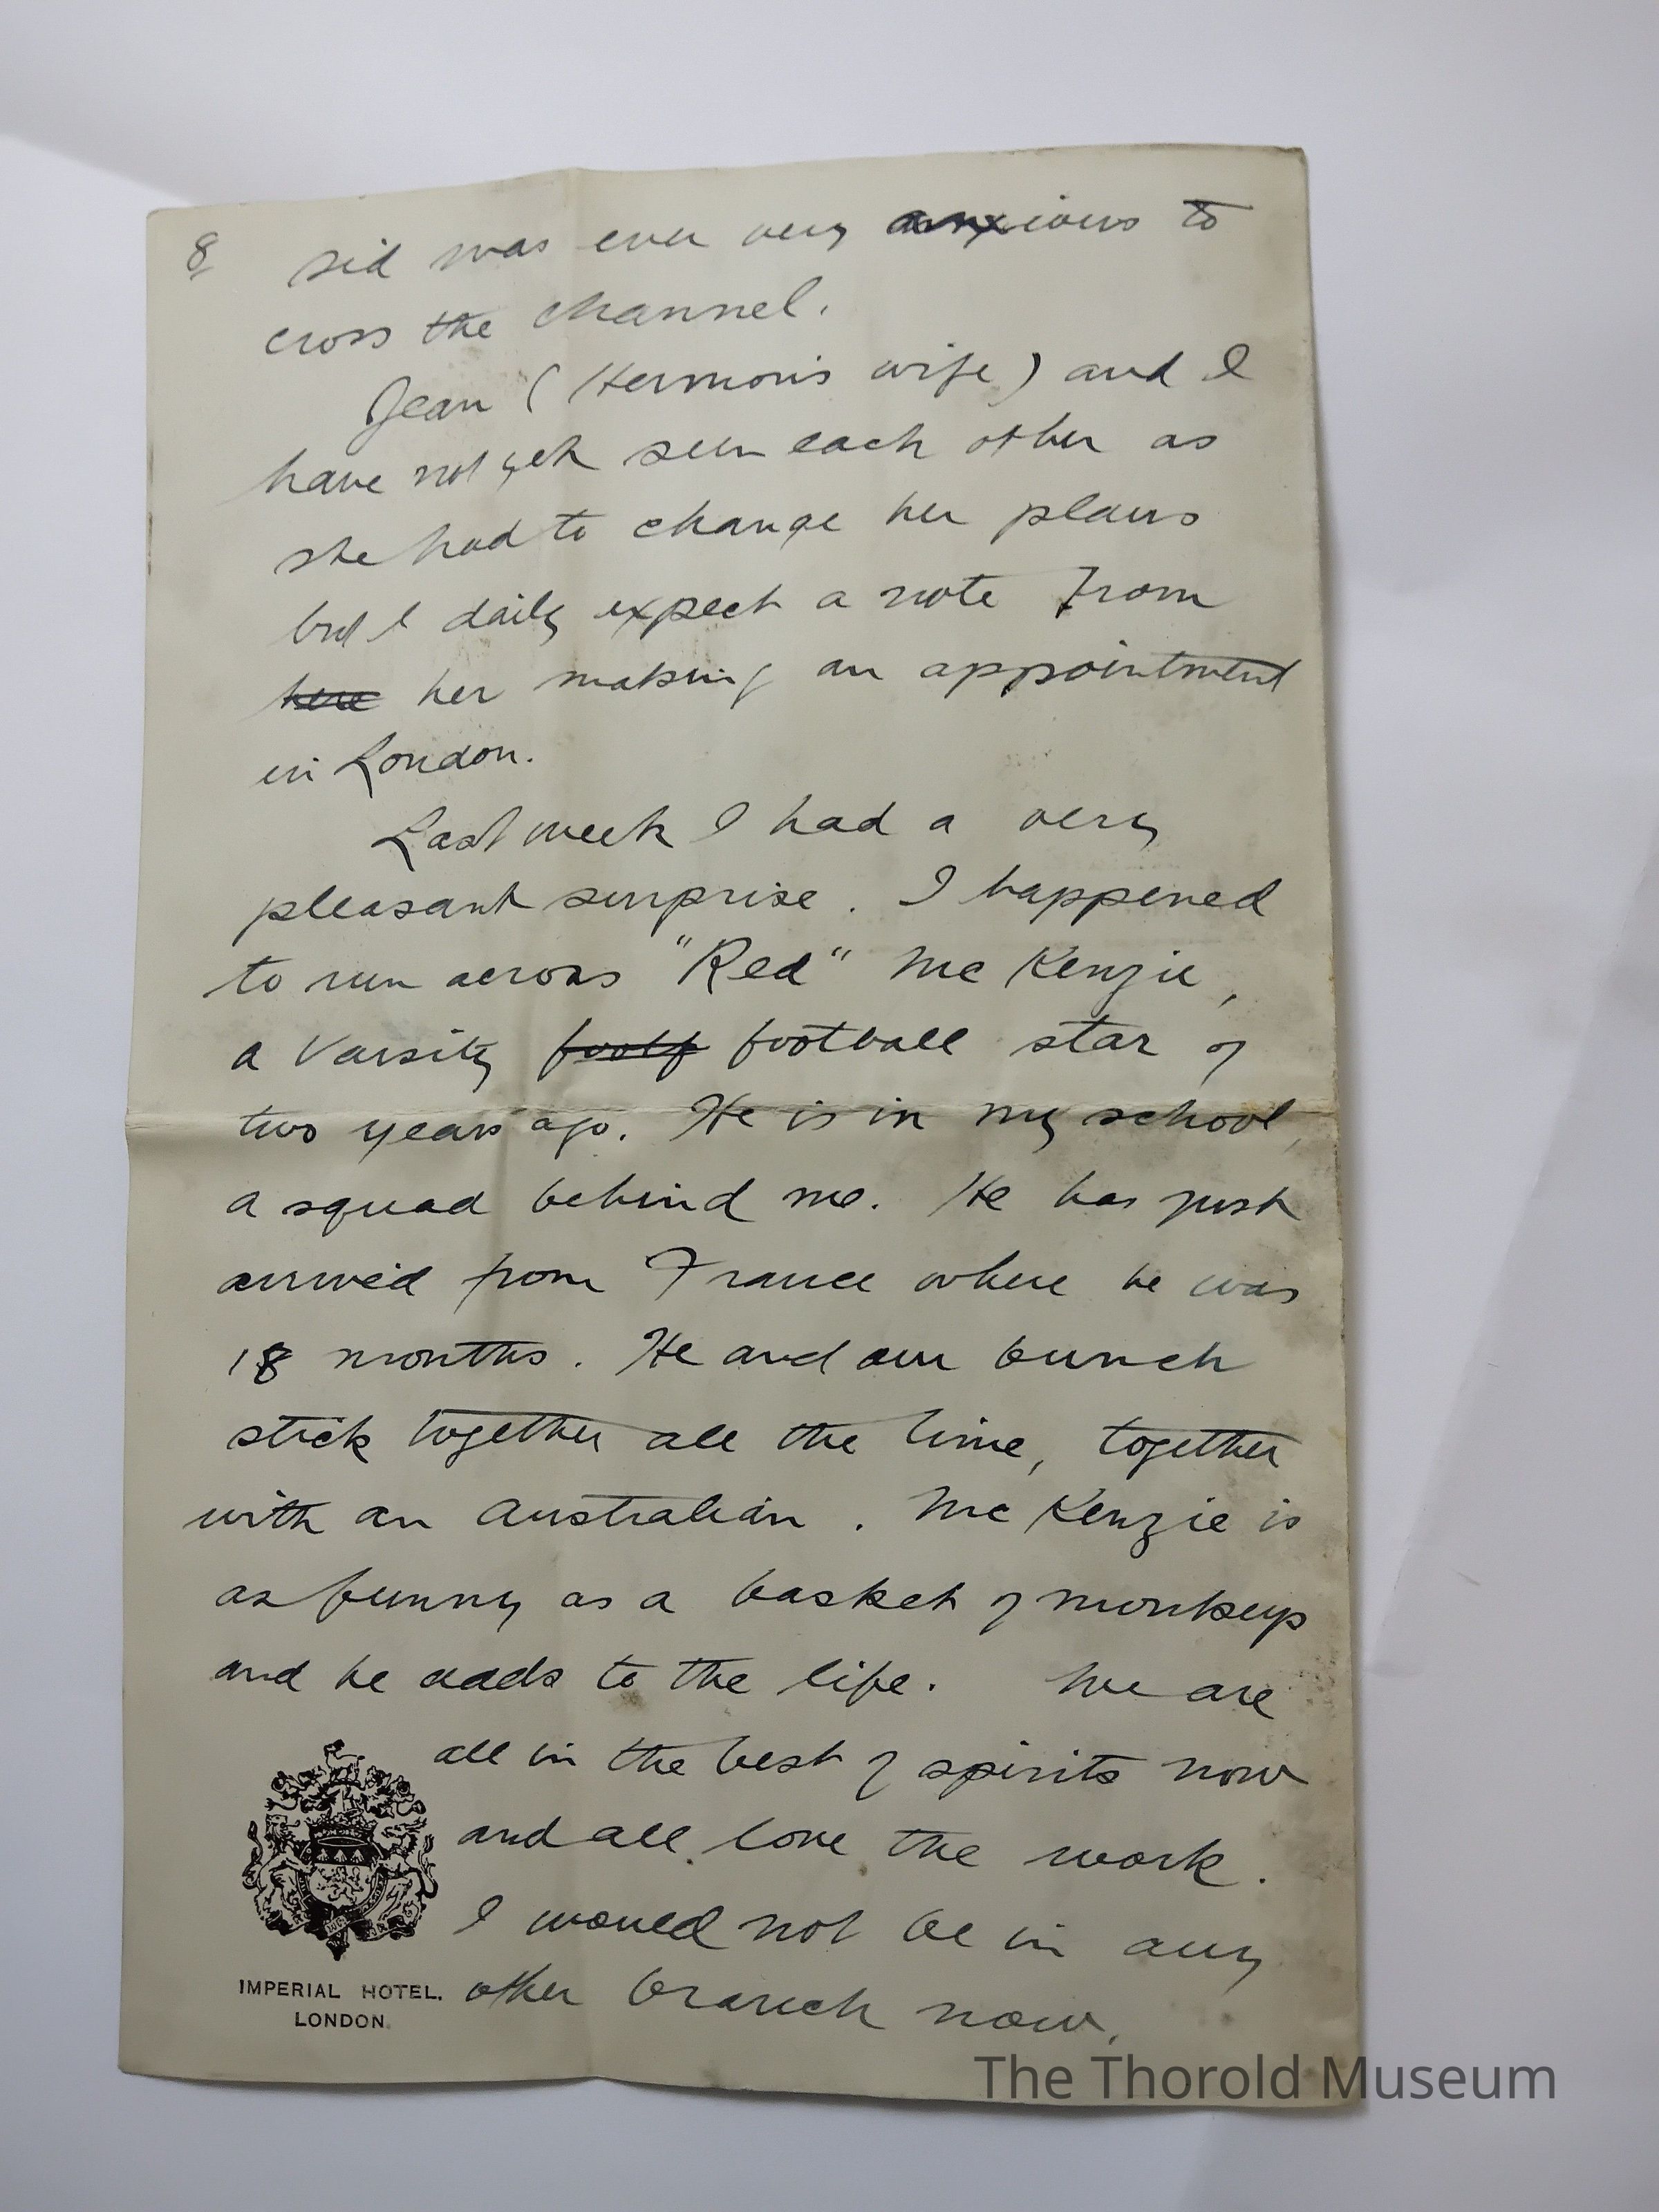 8
sid was ever very anxious to
cross the channel.
Jean (Hermon's wife) and I
have not yet seen each other as
she had to change her plans
but I daily expect a note from
here her making an appointment
in London.
Last week I had a very
pleasant surprise. I happened
to run across "Red" McKenzie,
a Varsity footf football star of
two years ago. He is in my school,
a squad behind me. He has just
arrived from France where he was
18 months. He and our bunch
stick together all the time, together
with an Australian. McKenzie is
as funny as a basket of monkeys
and he adds to the life. We are
all in the best of spirits now
and all love the work.
I would not be in any
other branch now.
IMPERIAL HOTEL.
LONDON.
The Thorold Museum